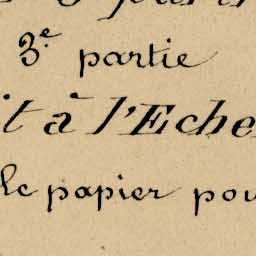 3e. partie
t à l'Eche
le papier pou